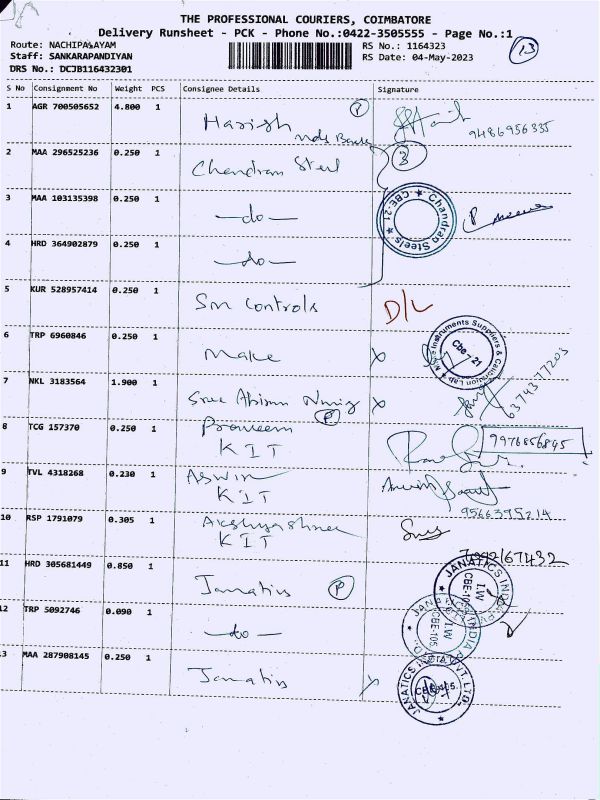 THE PROFESSIONAL COURIERS, COIMBATORE
Delivery Runsheet - PCK - Phone No.:0422-3505555 - Page No.:1
Route: NACHIPALAYAM RS No.: 1164323 13
Staff: SANKARAPANDIYAN RS Date: 04-May-2023
DRS No.: DCJB116432301
S No Consignment No Weight PCS Consignee Details Signature
1 AGR 700505652 4.800 1 Harish P
9486956335
2 MAA 296525236 0.250 1 Chandran Steel 3
3 MAA 103135398 0.250 1 -do-
Chandran Steels ★ CBE-21 ★
4 HRD 364902879 0.250 1 -do-
5 KUR 528957414 0.250 1 Sm Controls D/L
6 TRP 6960846 0.250 1 Make X
Instruments Suppliers & Calibration Lab ★ Cbe - 21
7 NKL 3183564 1.900 1 Sree P X
6374377203
8 TCG 157370 0.250 1 Praveen
KIT 9976856845
9 TVL 4318268 0.230 1 Aswin
KIT
9566395214
10 RSP 1791079 0.305 1 Akshyashree
KIT
11 HRD 305681449 0.850 1 Janatics P
JANATICS INDIA CBE-105 I.W
12 TRP 5092746 0.090 1 -do-
JANATICS INDIA CBE-105. I.W
13 MAA 287908145 0.250 1 Janatics X
JANATICS INDIA PVT. LTD.